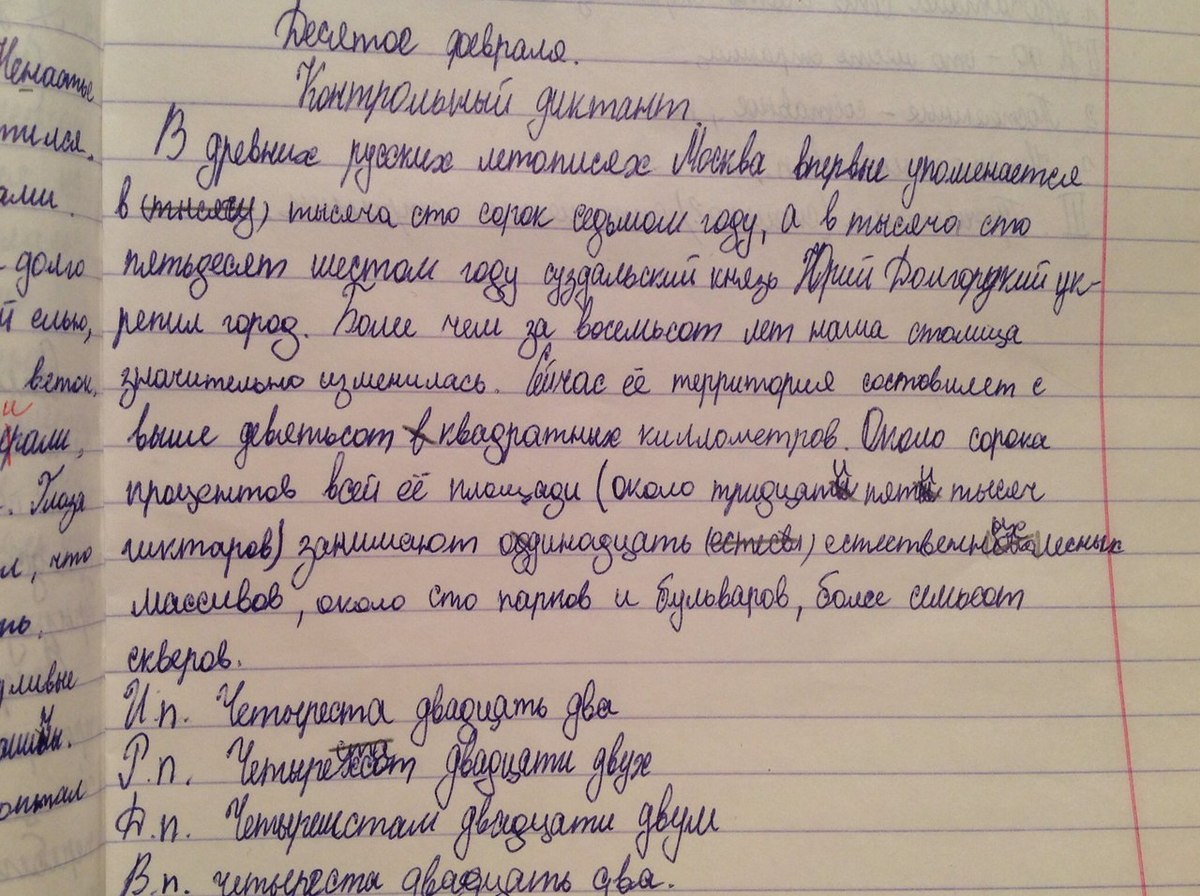 Десятое февраля.
Контрольный диктант.
В древних русских летописях Москва впервые упоменается
в (тысячу) тысяча сто сорок седьмом году, а в тысяча сто
пятьдесят шестом году суздальский князь Юрий Долгорукий ук-
репил город. Более чем за восемьсот лет наша столица
значительно изменилась. Сейчас её территория состовляет с
выше девятьсот в квадратных киллометров. Около сорока
процентов всей её площади (около тридцати пяти тысяч
гиктаров) занимают одинадцать (естесвы) естественных лесных
массивов, около сто парков и бульваров, более семьсот
скверов.
И.п. Четыреста двадцать два
Р.п. Четырехсот двадцати двух
Д.п. Четыремстам двадцати двум
В.п. четыреста двадцать два.
Ненастье
тился.
ами.
- долго
й елью,
веток,
и
рали,
. Глаза
л, что
ть.
дливые
опытал